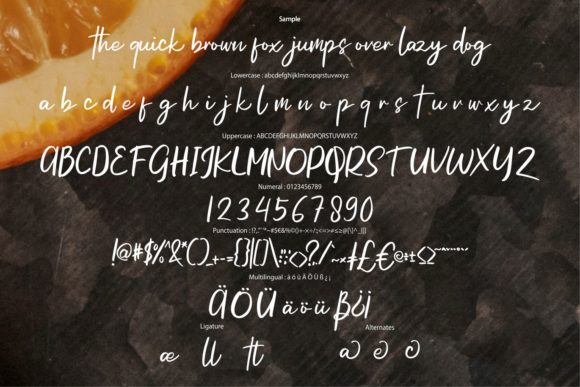 Sample
the quick brown fox jumps over lazy dog
Lowercase : abcdefghijklmnopqrstuvwxyz
a b c d e f g h i j k l m n o p q r s t u v w x y z
Uppercase : ABCDEFGHIJKLMNOPQRSTUVWXYZ
ABCDEFGHIJKLMNOPQRSTUVWXYZ
Numeral : 0123456789
1234567890
Punctuation :
Multilingual : ä ö ü Ä Ö Ü ß ¿ ¡
ÄÖÜ äöü ß¿¡
Ligature Alternates
æ ll tt a e o